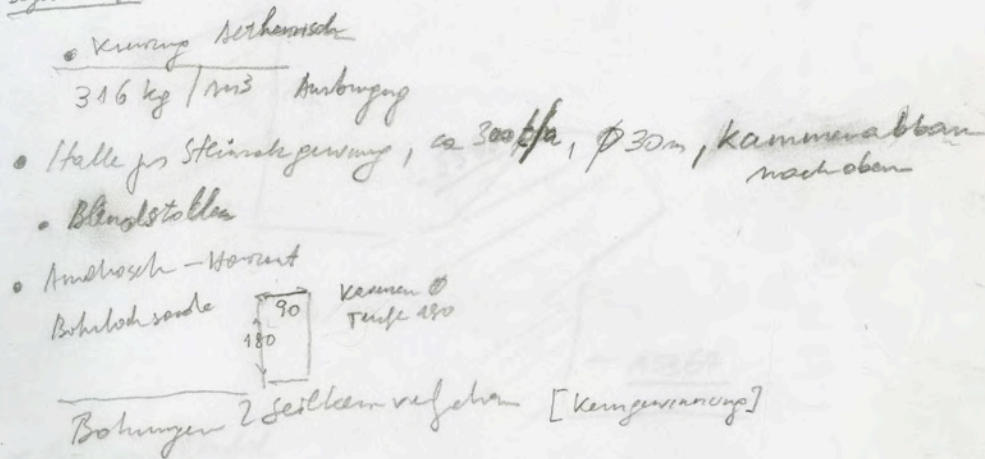 316 kg / m3 Ausbringung
• Halle pro Steinsalzgewinnung, ca 300 t/a, Ø 30m, Kammerabbau
nach oben
• Blindstollen
• - Horizont
Bohrlochsonde
90
180
Kavernen Ø
Teufe 180
Bohrungen 2 Seilkernverfahren [Kerngewinnung]